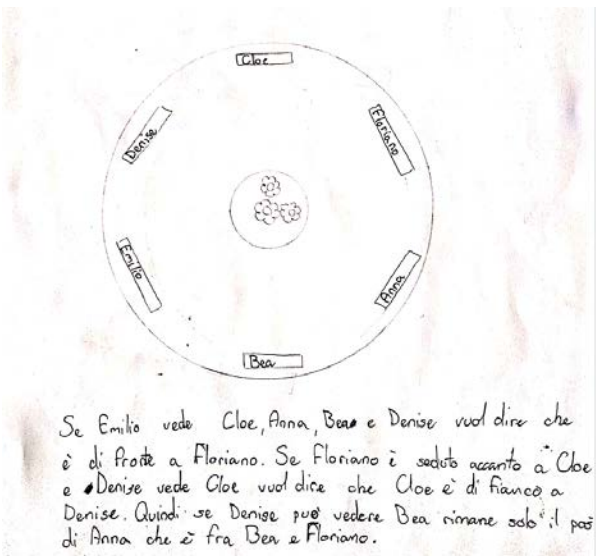 Cloe
Denise
Floriano
Emilio
Anna
Bea
Se Emilio vede Cloe, Anna, Bea e Denise vuol dire che
è di fronte a Floriano. Se Floriano è seduto accanto a Cloe
e Denise vede Cloe vuol dire che Cloe è di fianco a
Denise. Quindi se Denise può vedere Bea rimane solo il pos
di Anna che è fra Bea e Floriano.